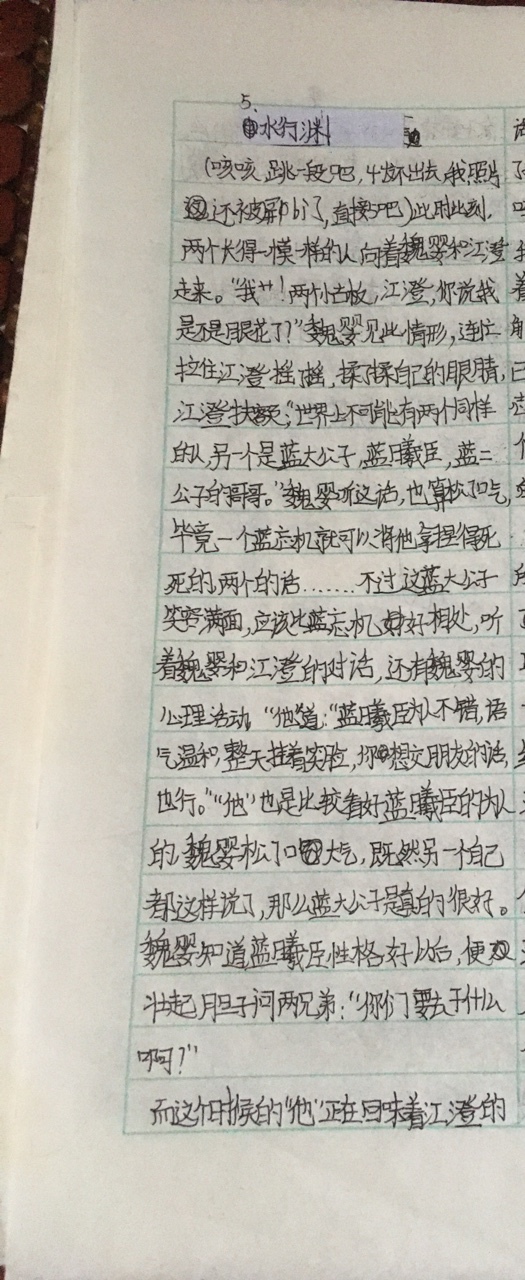 5.
水行渊
（咳咳，跳一段吧，小坏出去，我照片
还被屏bì了，直接3吧）此时此刻，
两个长得一模一样的人向着魏婴和江澄
走来。“我艹！两个小古板，江澄，你说我
是不是眼花了？”魏婴见此情形，连忙
拉住江澄摇摇，揉了揉自己的眼睛，
江澄扶额：“世界上不可能有两个同样
的人，另一个是蓝大公子，蓝曦臣，蓝二
公子的哥哥。”魏婴听这话，也算松了口气，
毕竟一个蓝忘机就可以将他拿捏得死
死的，两个的话……不过这蓝大公子
笑容满面，应该比蓝忘机好相处，听
着魏婴和江澄的对话，还有魏婴的
心理活动“他”道：“蓝曦臣为人不错，语
气温和，整天挂着笑脸，你想交朋友的话，
也行。”“他”也是比较看好蓝曦臣的为人
的，魏婴松了口大气，既然另一个自己
都这样说了，那么蓝大公子是真的很好。
魏婴知道蓝曦臣性格好以后，便
壮起胆子问两兄弟：“你们要去干什么
啊？”
而这个时候的“他”正在回味着江澄的